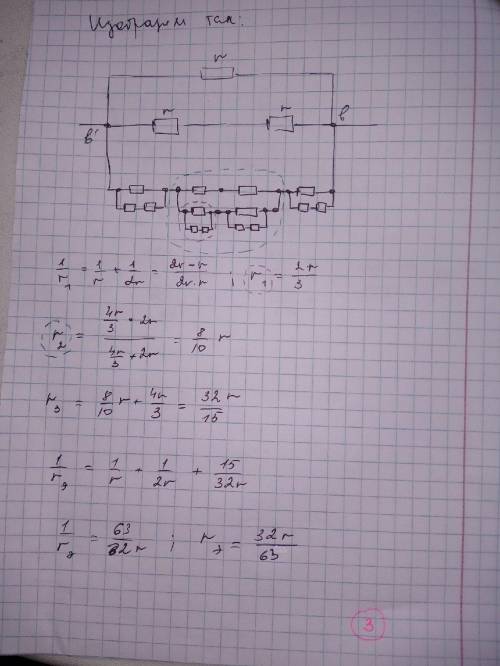 Изобразим так:
r
r r
в' в
1/r₁ = 1/r + 1/2r = 2r - r / 2r·r ; r₁ = 2r/3
r₂ = (4r/3 · 2r) / (4r/3 + 2r) = 8/10 r
r₃ = 8/10 r + 4r/3 = 32r/15
1/rэ = 1/r + 1/2r + 15/32r
1/rэ = 63/32r ; rэ = 32r/63
3